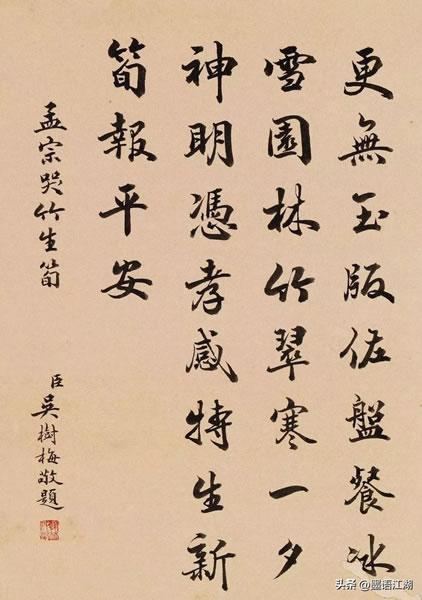 更無玉版佐盤餐冰
雪園林竹翠寒一夕
神明憑孝感特生新
筍報平安
孟宗哭竹生筍
臣吳樹梅敬題
头条@墨语江湖